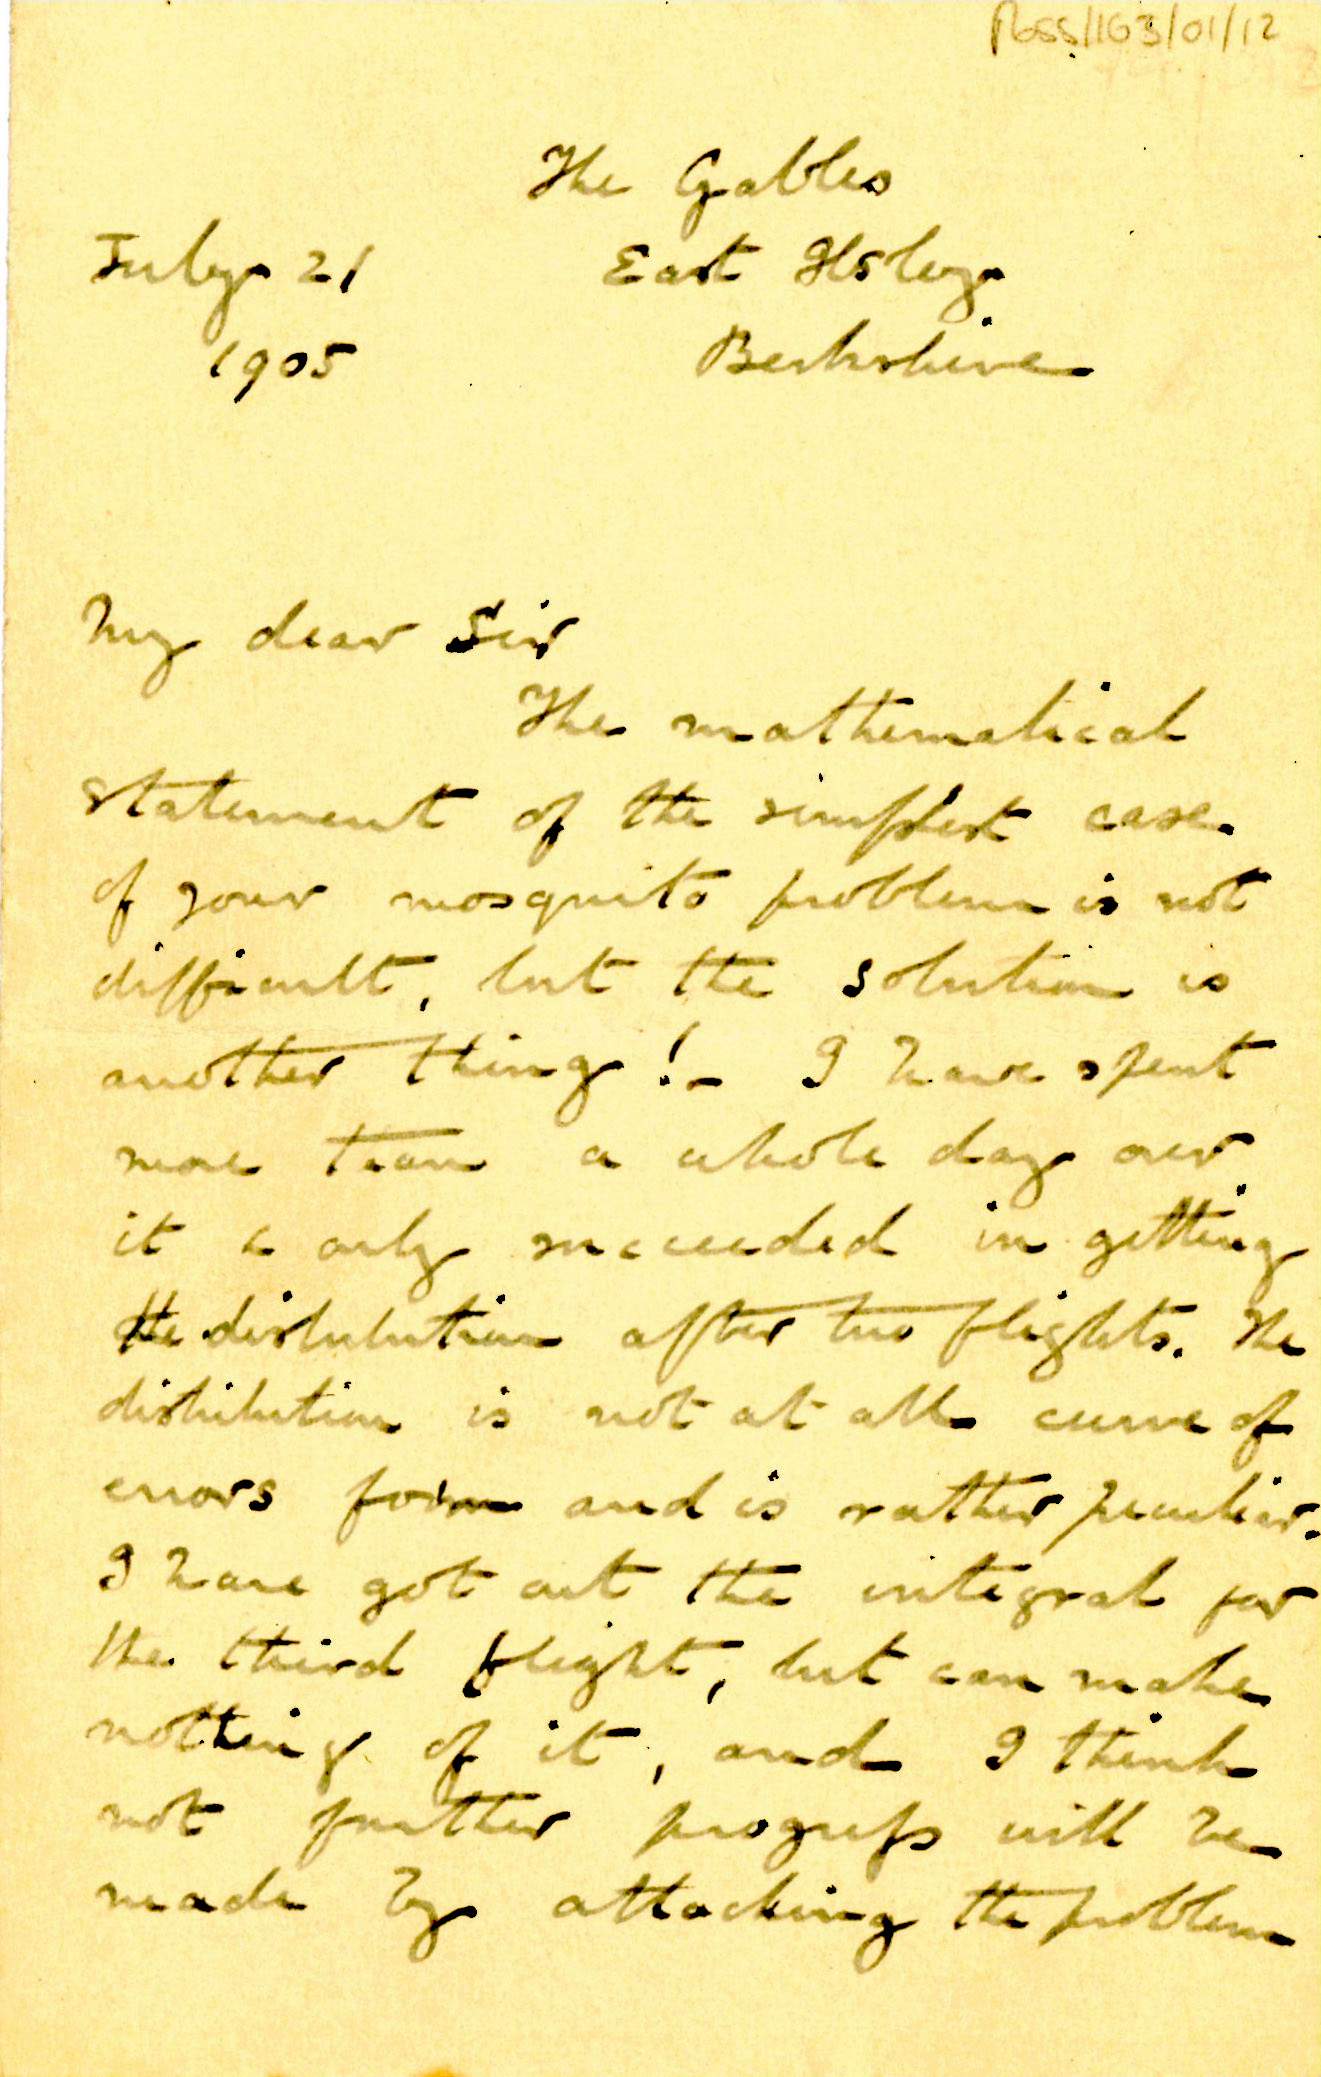 Ross/163/01/12
The Gables
July 21 East Ilsley
1905 Berkshire
My dear Sir
The mathematical
statement of the simplest case
of your mosquito problem is not
difficult, but the solution is
another thing! – I have spent
more than a whole day over
it & only succeeded in getting
the distribution after two flights. The
distribution is not at all curve of
errors form and is rather peculiar.
I have got out the integral for
the third flight, but can make
nothing of it, and I think
not further progress will be
made by attacking the problem